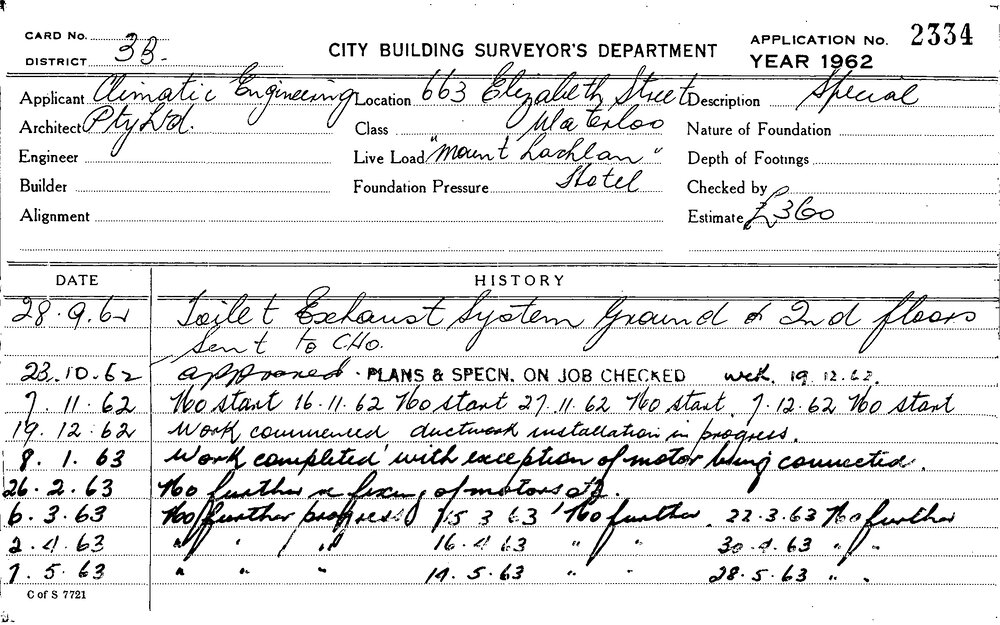 CARD No.
DISTRICT 3B.
CITY BUILDING SURVEYOR'S DEPARTMENT
APPLICATION No. 2334
YEAR 1962
Applicant Climatic Engineering Location 663 Elizabeth Street Description Special
Architect Pty Ltd. Class Waterloo Nature of Foundation
Engineer Live Load "Mount Lachlan" Depth of Footings
Builder Foundation Pressure Hotel Checked by
Alignment Estimate £360
DATE HISTORY
28.9.62 Toilet Exhaust System Ground & 2nd floors
Sent to CHO.
23.10.62 approved. PLANS & SPECN. ON JOB CHECKED 19.12.62.
7.11.62 No start 16.11.62 No start 27.11.62 No start. 7.12.62 No start
19.12.62 Work commenced ductwork installation in progress.
8.1.63 Work completed with exception of motor being connected.
26.2.63 No further re fixing of motors etc.
6.3.63 No further progress 15.3.63 No further. 22.3.63 No further
2.4.63 " " " 16.4.63 " " 30.4.63 " "
7.5.63 " " " 14.5.63 " " 28.5.63 " "
C of S 7721